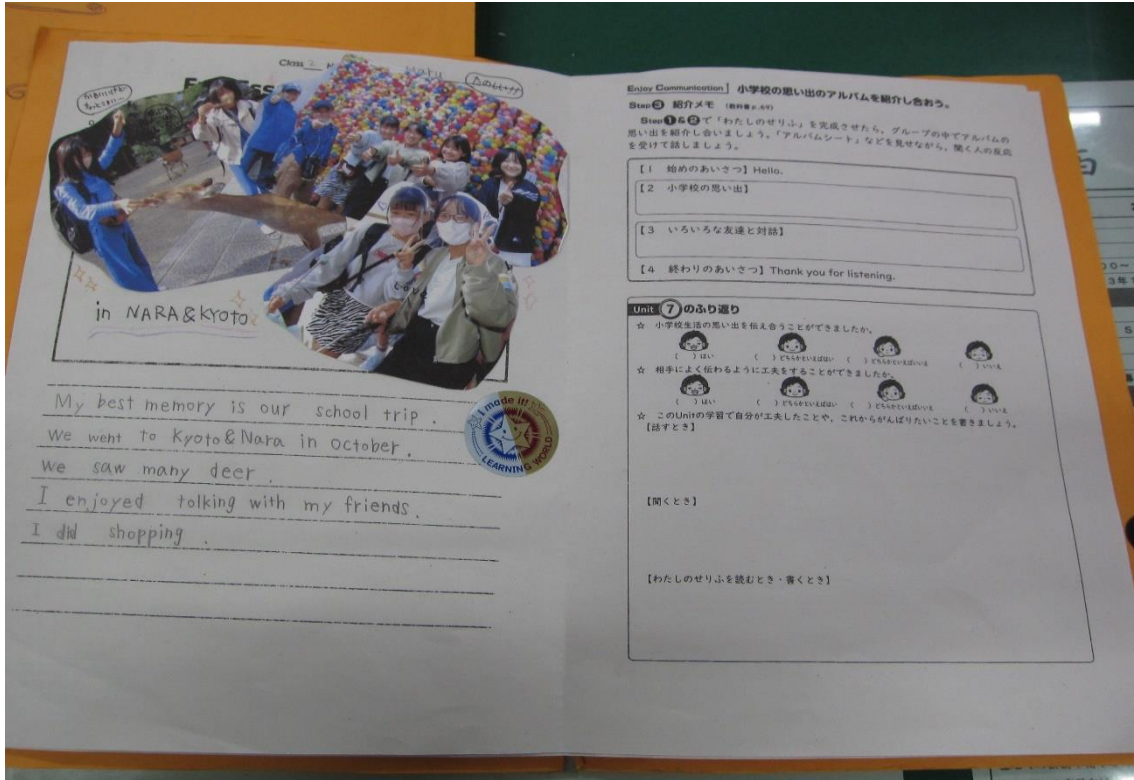 Class 2
たのしい!!
in NARA&KYOTO
My best memory is our school trip.
We went to Kyoto&Nara in October.
We saw many deer.
I enjoyed tolking with my friends.
I did shopping.
I made it!
LEARNING WORLD
Enjoy Communication 小学校の思い出のアルバムを紹介し合おう。
Step3 紹介メモ (教科書p.69)
Step1&2で「わたしのせりふ」を完成させたら、グループの中でアルバムの
思い出を紹介し合いましょう。「アルバムシート」などを見せながら、聞く人の反応
を受けて話しましょう。
【1 始めのあいさつ】Hello.
【2 小学校の思い出】
【3 いろいろな友達と対話】
【4 終わりのあいさつ】Thank you for listening.
Unit 7のふり返り
☆ 小学校生活の思い出を伝え合うことができましたか。
( )はい ( )どちらかといえばはい ( )どちらかといえばいいえ ( )いいえ
☆ 相手によく伝わるように工夫をすることができましたか。
( )はい ( )どちらかといえばはい ( )どちらかといえばいいえ ( )いいえ
☆ このUnitの学習で自分が工夫したことや、これからがんばりたいことを書きましょう。
【話すとき】
【聞くとき】
【わたしのせりふを読むとき・書くとき】